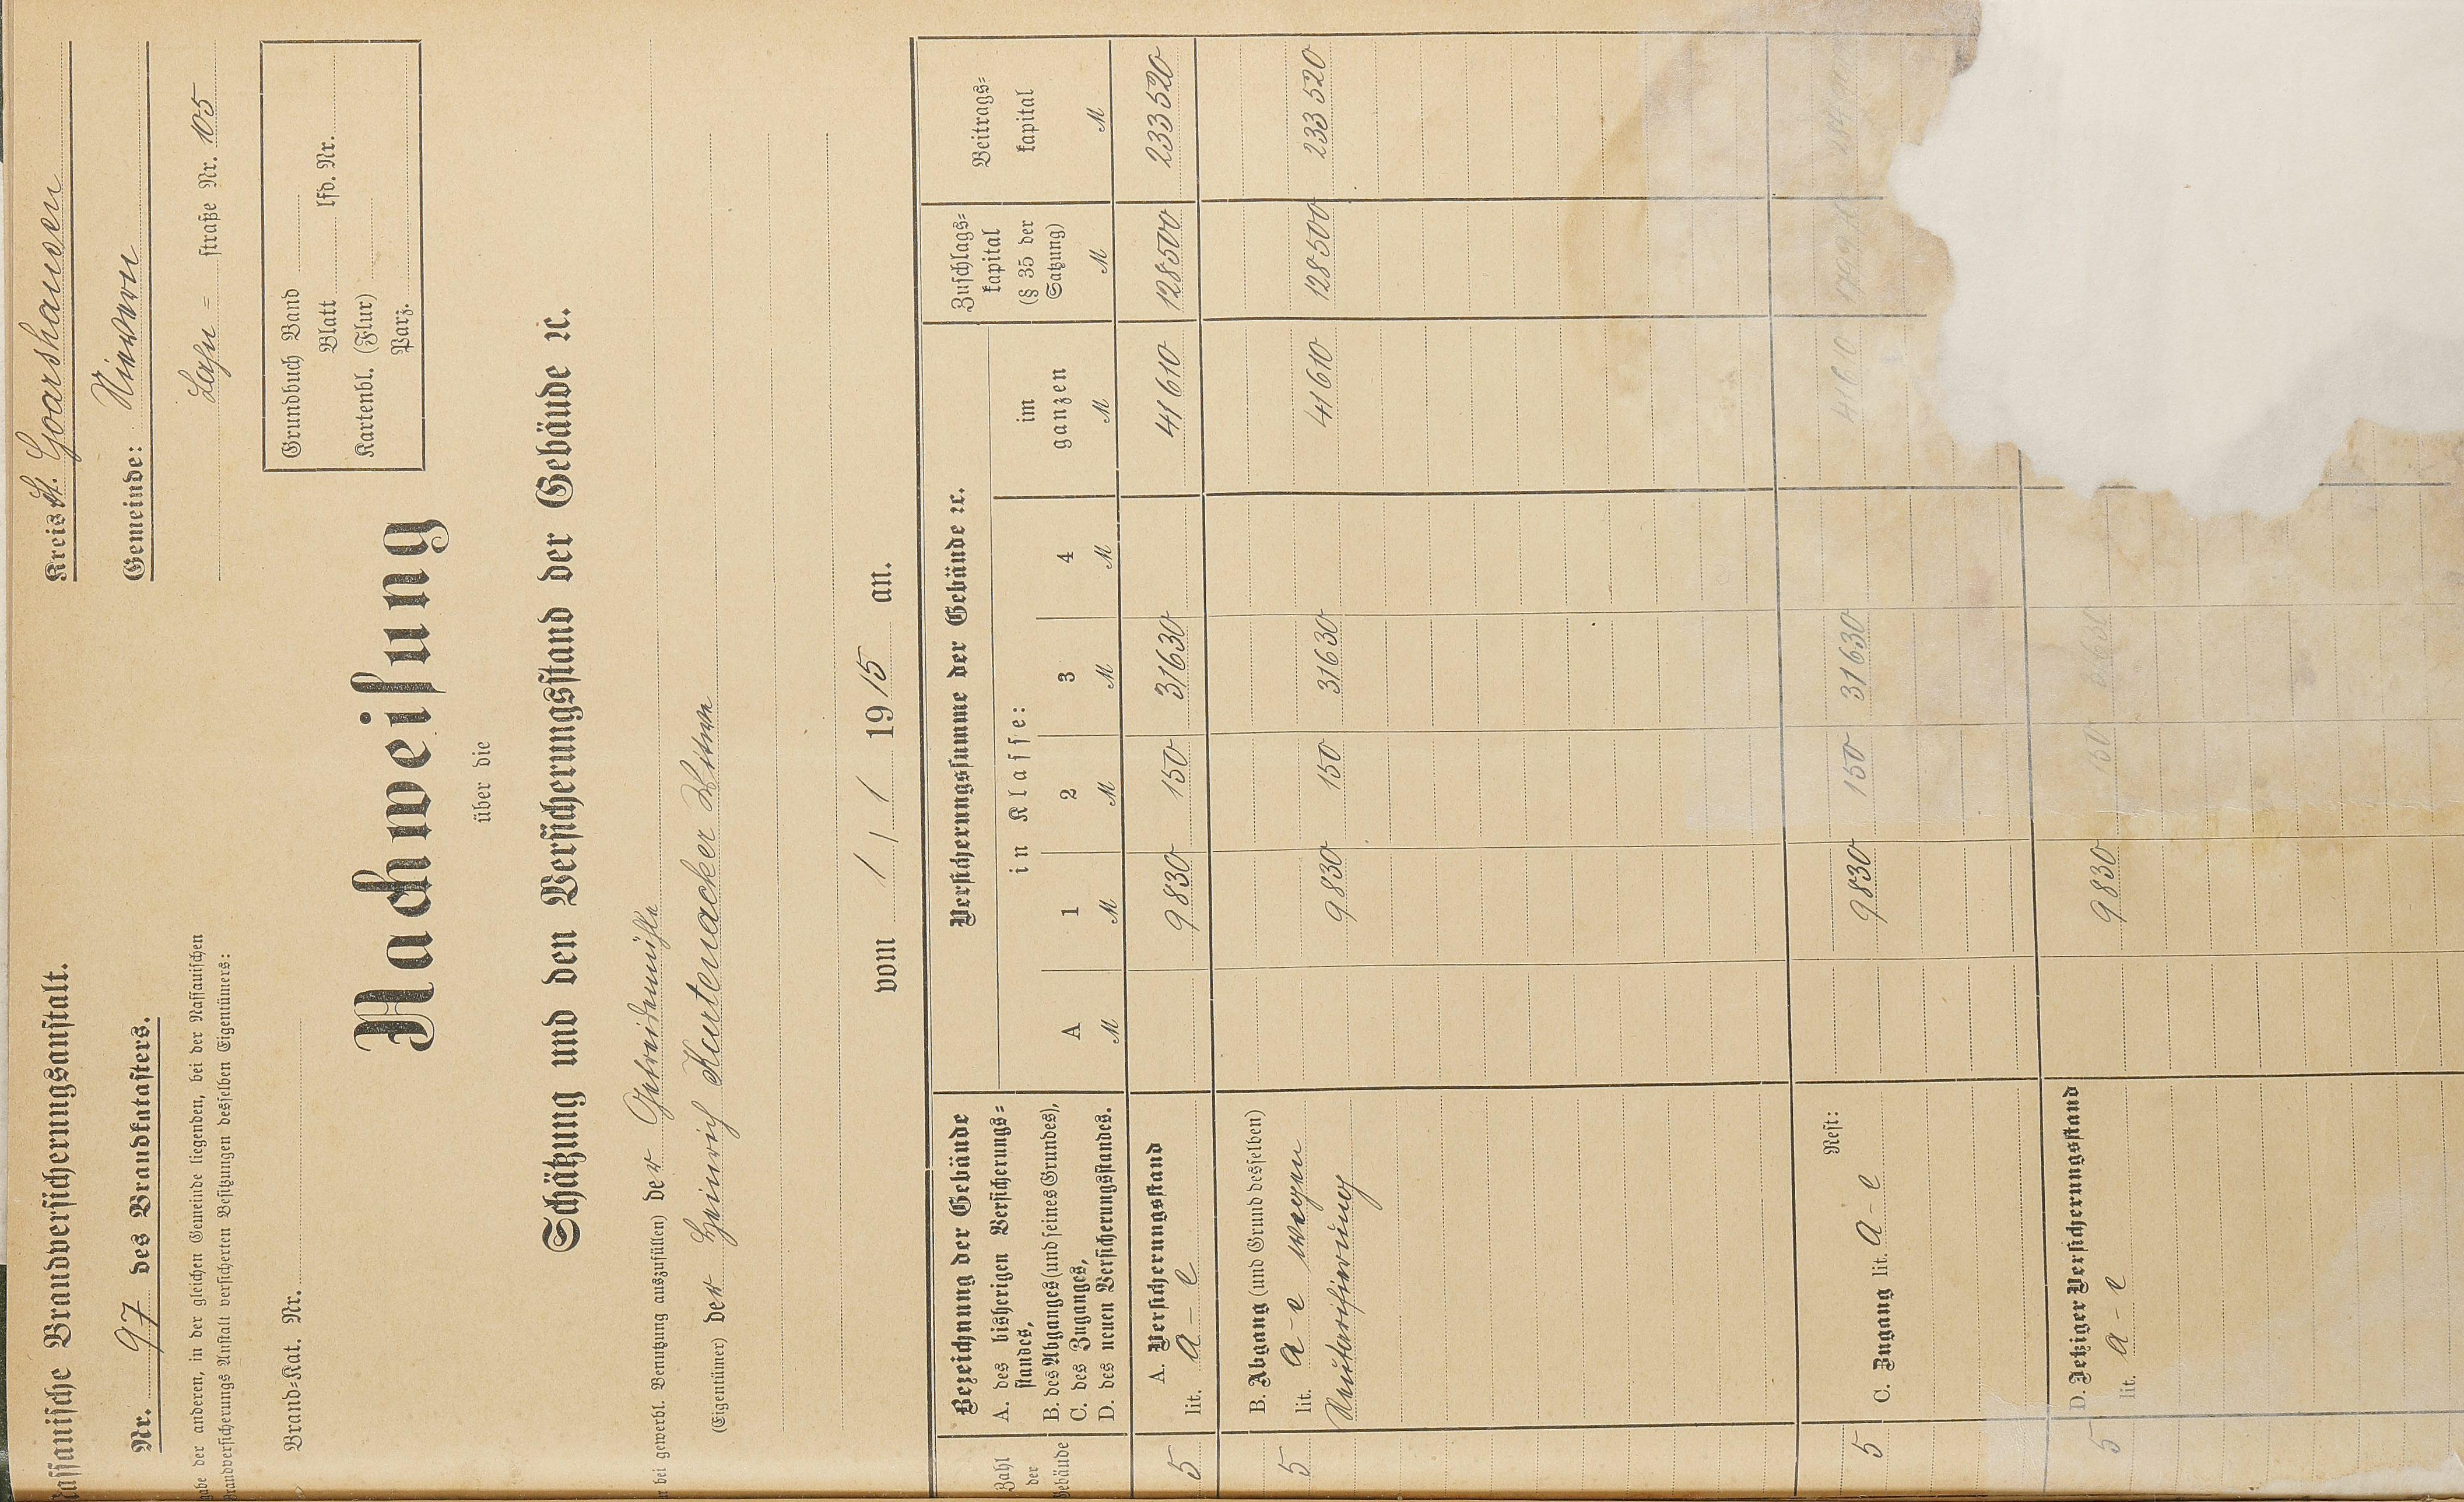 Nassauische Brandversicherungsanstalt.
Nr. 97 des Brandkatasters.
Kreis St. Goarshausen
Gemeinde: Nievern
Lahn = straße Nr. 105
gabe der anderen, in der gleichen Gemeinde liegenden, bei der Nassauischen
Brandversicherungs Anstalt versicherten Besitzungen desselben Eigentümers:
Brand=Kat. Nr.
Grundbuch Band
Blatt lfd. Nr.
Kartenbl. (Flur)
Parz.
Nachweisung
über die
Schätzung und den Versicherungsstand der Gebäude ꝛc.
r bei gewerbl. Benutzung auszufüllen) der Getreidemühle
(Eigentümer) der Heinrich Kurtenacker Witwe
vom 1 / 1 1915 an.
Zahl der Gebäude
Bezeichnung der Gebäude
A. des bisherigen Versicherungs=
standes,
B. des Abganges (und seines Grundes),
C. des Zuganges,
D. des neuen Versicherungsstandes.
Versicherungssumme der Gebäude ꝛc.
in Klasse:
A 1 2 3 4
M M M M M
im ganzen M
Zuschlags=
kapital
(§ 35 der
Satzung)
M
Beitrags=
kapital
M
A. Versicherungsstand
5 lit. a - e 9830 150 31630 41610 128500 233520
B. Abgang (und Grund desselben)
5 lit. a - e wegen 9830 150 31630 41610 128500 233520
Neutarifierung
Rest:
5 C. Zugang lit. a - e 9830 150 31630 41610
D. Jetziger Versicherungsstand
5 lit. a - e 9830 150 31630